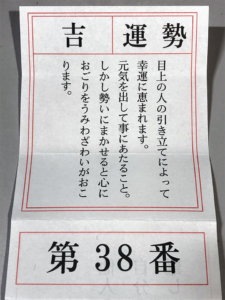 吉 運勢
目上の人の引き立てによって
幸運に恵まれます。
元気を出して事にあたること。
しかし勢いにまかせると心に
おごりをうみわざわいがおこ
ります。
第38番